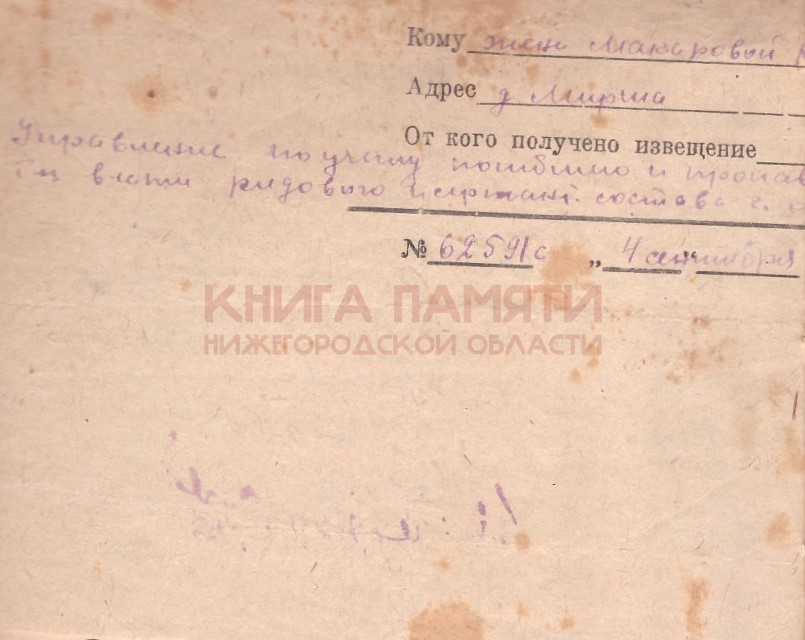 Кому жене Макаровой
Адрес д Мирша
От кого получено извещение
Управление по учету погибшего и пропав
рядового и сержант. состава г.
№ 62591с „ 4 сентября
КНИГА ПАМЯТИ
НИЖЕГОРОДСКОЙ ОБЛАСТИ